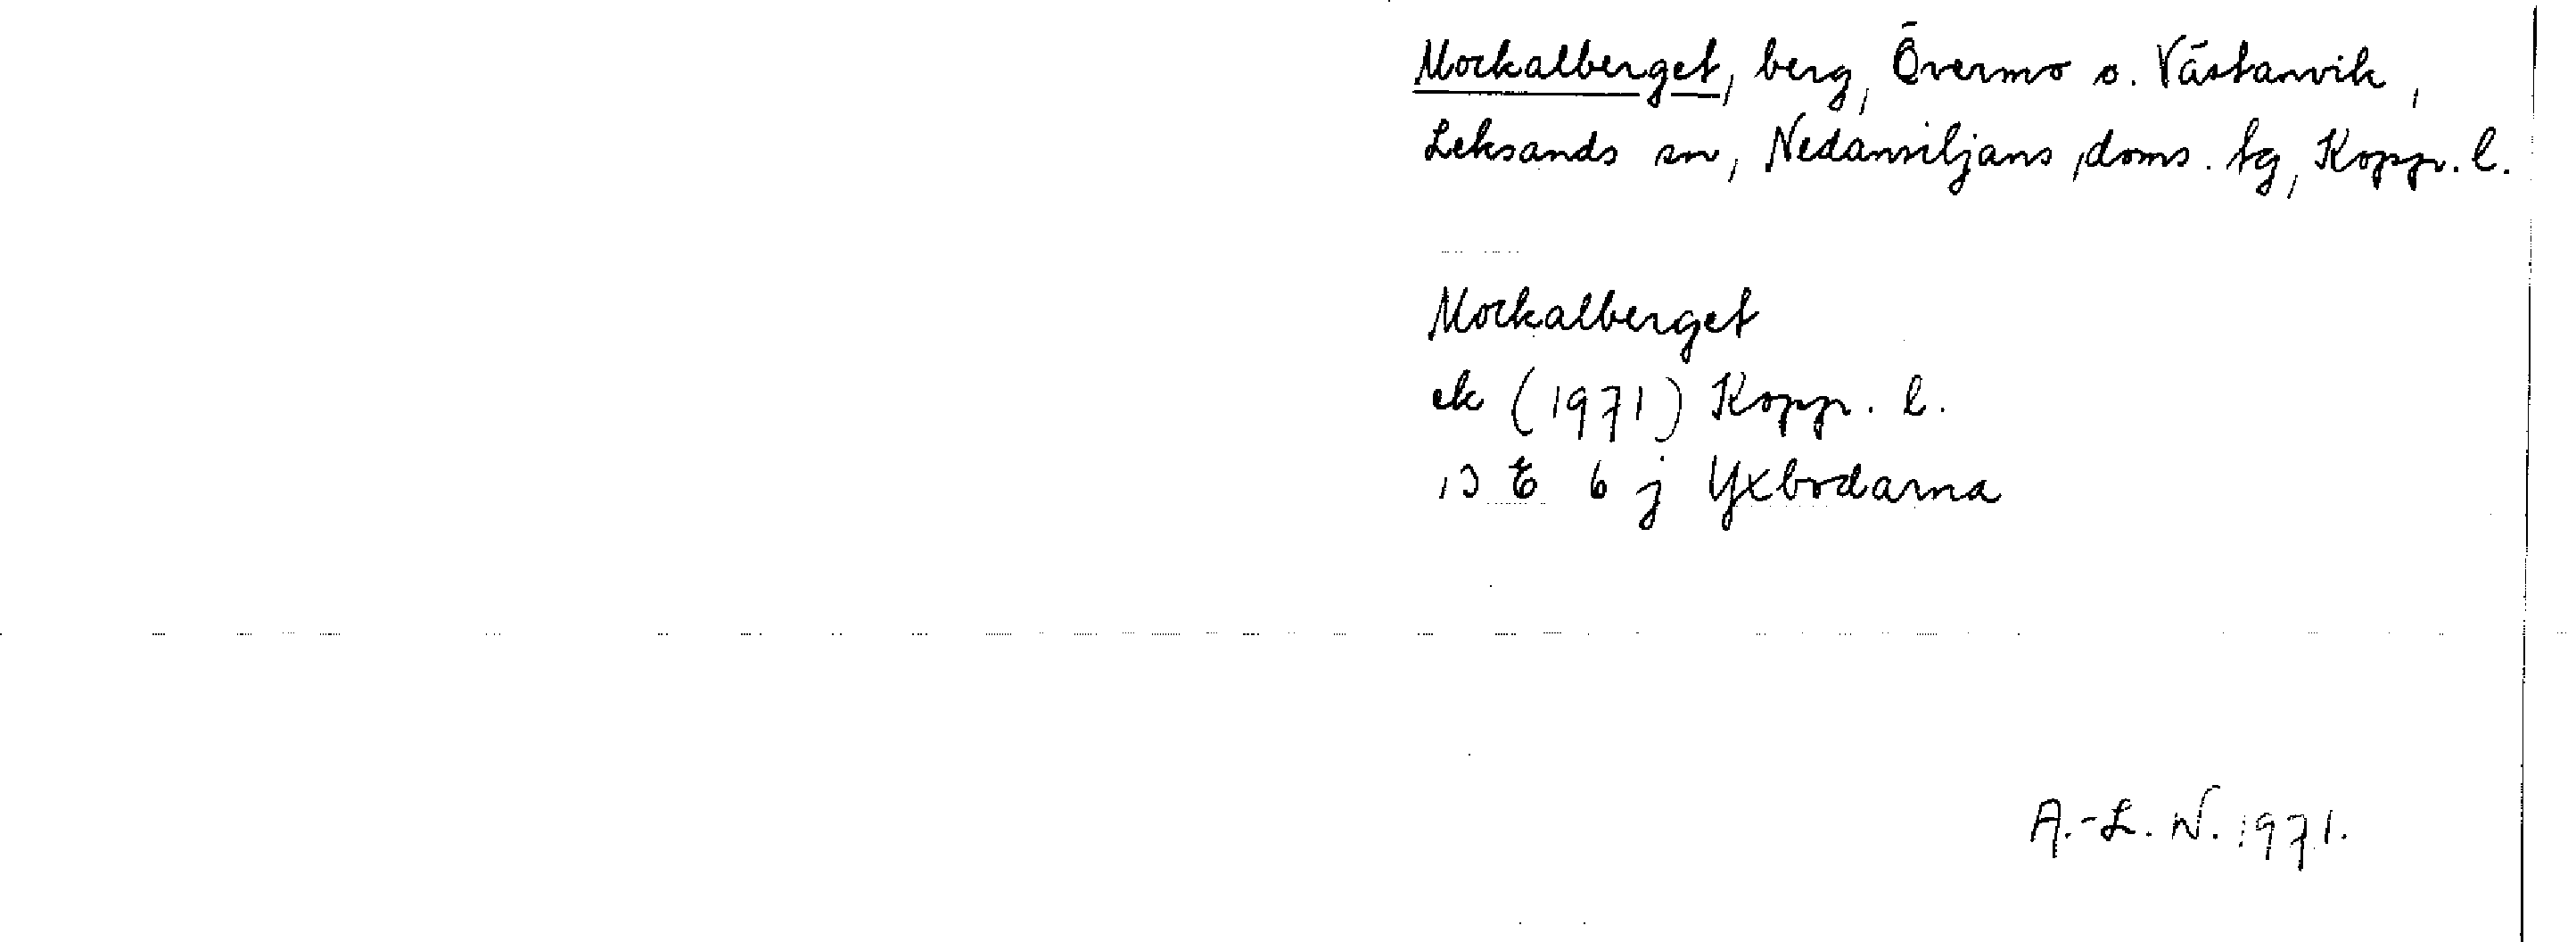 Mockalberget, berg, Övermo o. Västanvik,
Leksands sn, Nedansiljans doms. tg, Kopp. l.
Mockalberget
ek (1971) Kopp. l.
13 E 6 j Yxbodarna
A.-L. N. 1971.